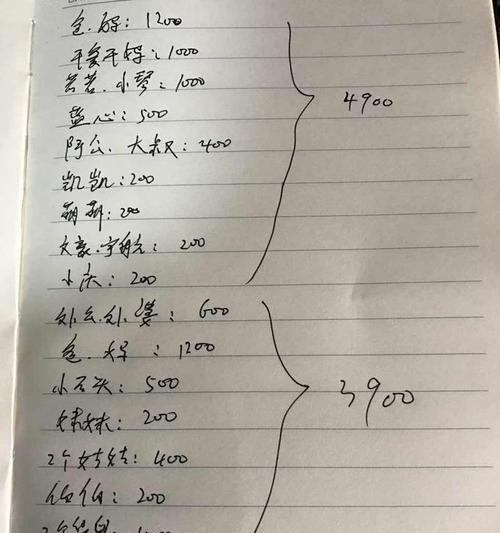 爸.妈：1200
干爹干妈：1000
小琴：1000
蓝心：500
阿公、大叔：400
凯凯：200
萌萌：200
文豪.宇航：200
小庆：200
4900
外公.外婆：600
爸.妈：1200
小石头：500
妹妹：200
2个姑姑：400
伯伯：200
2个
3900